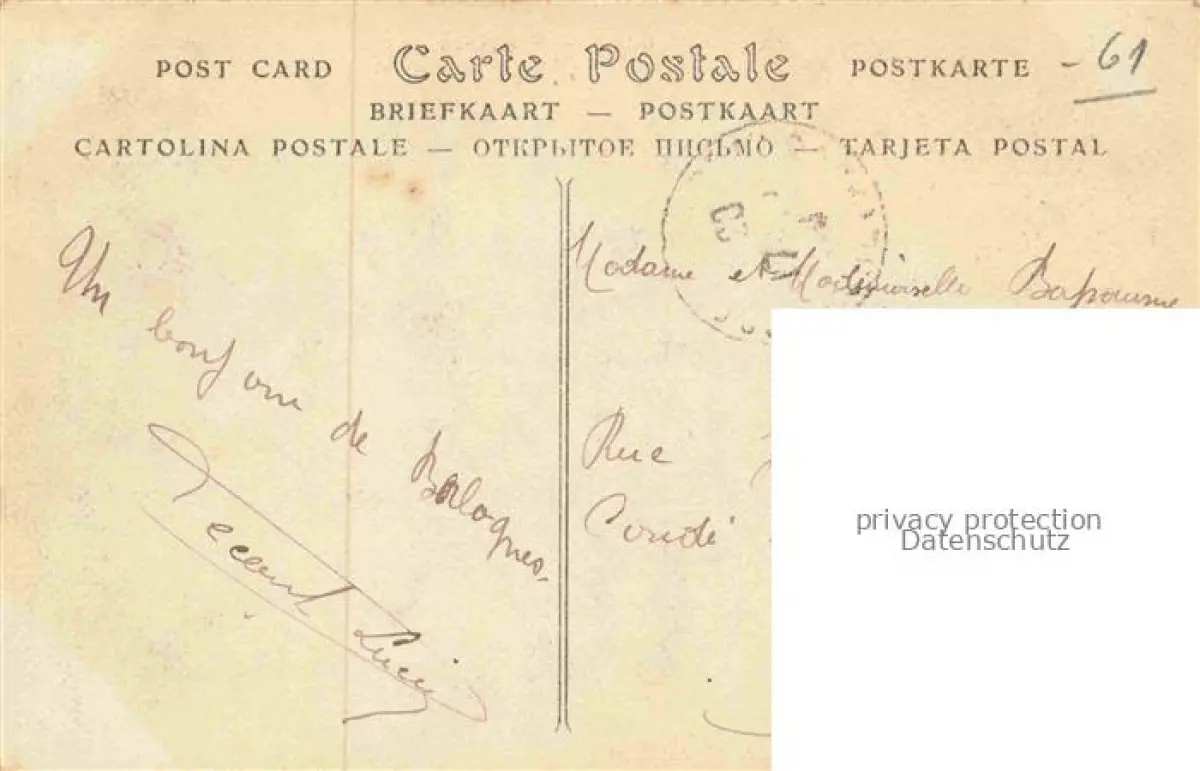 POST CARD Carte Postale POSTKARTE - 61
BRIEFKAART — POSTKAART
CARTOLINA POSTALE — ОТКРЫТОЕ ПИСЬМО — TARJETA POSTAL
Un bonjour de Boulognes.
Lucie
Madame et Mademoiselle Bapaume
Rue
Condé
privacy protection
Datenschutz